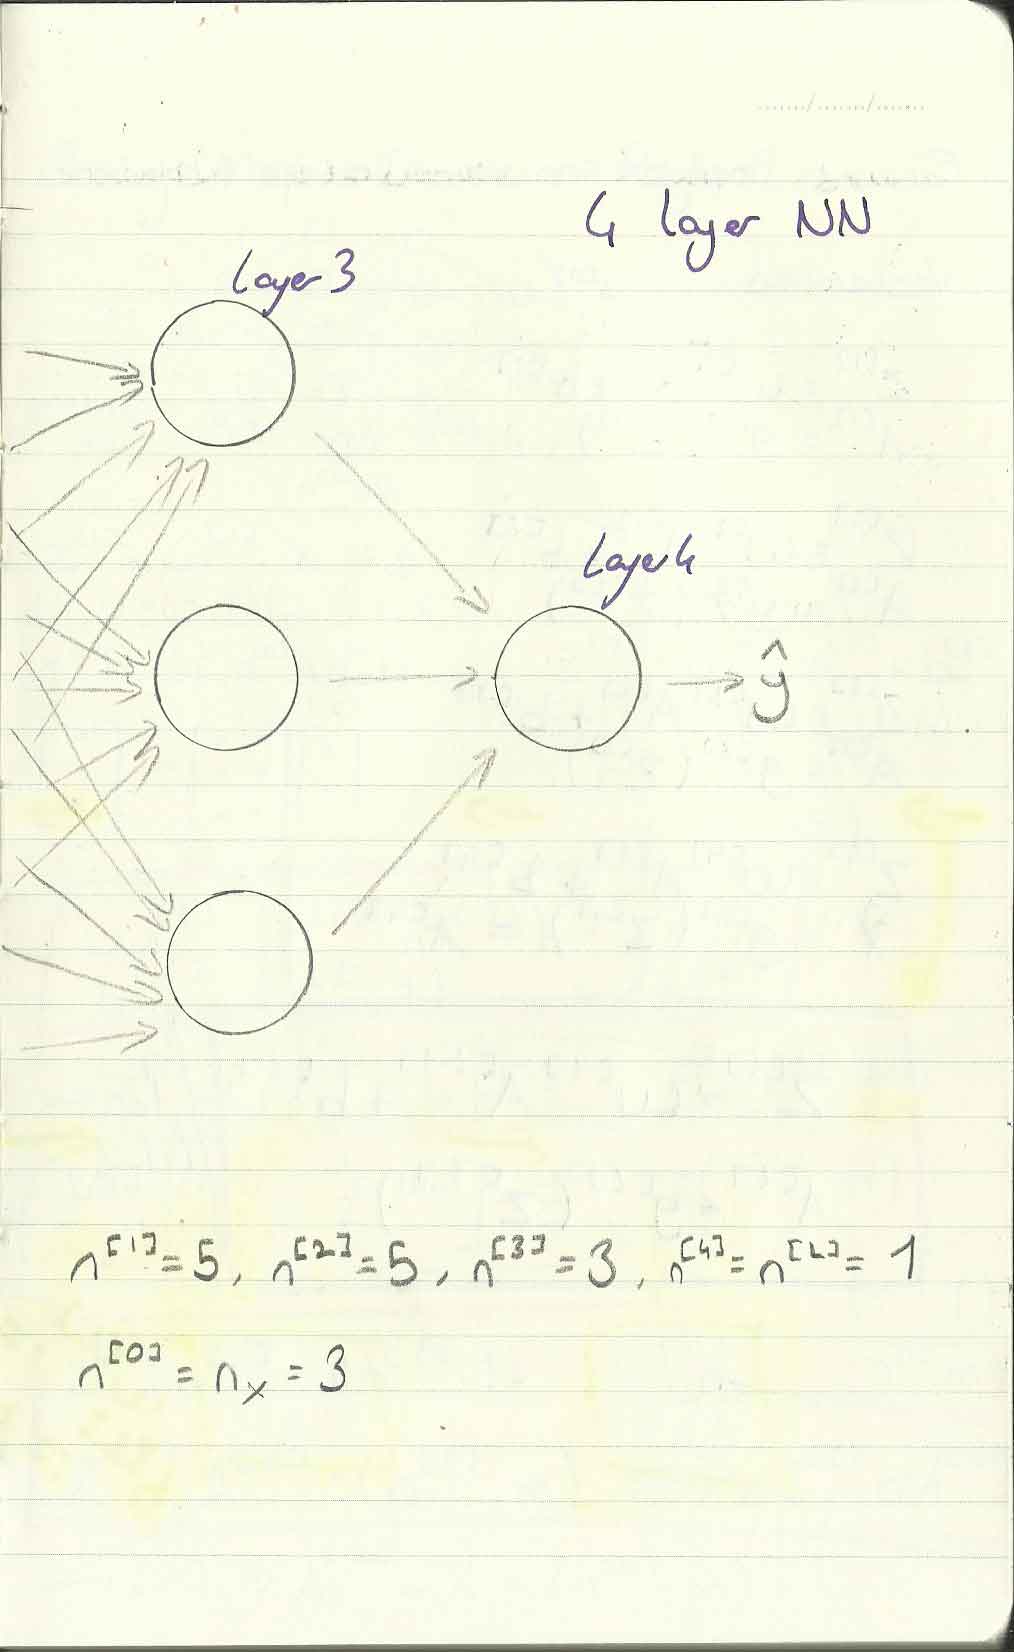 4 layer NN
Layer 3
Layer 4
ŷ
n^[1] = 5, n^[2] = 5, n^[3] = 3, n^[4] = n^[L] = 1
n^[0] = n_x = 3